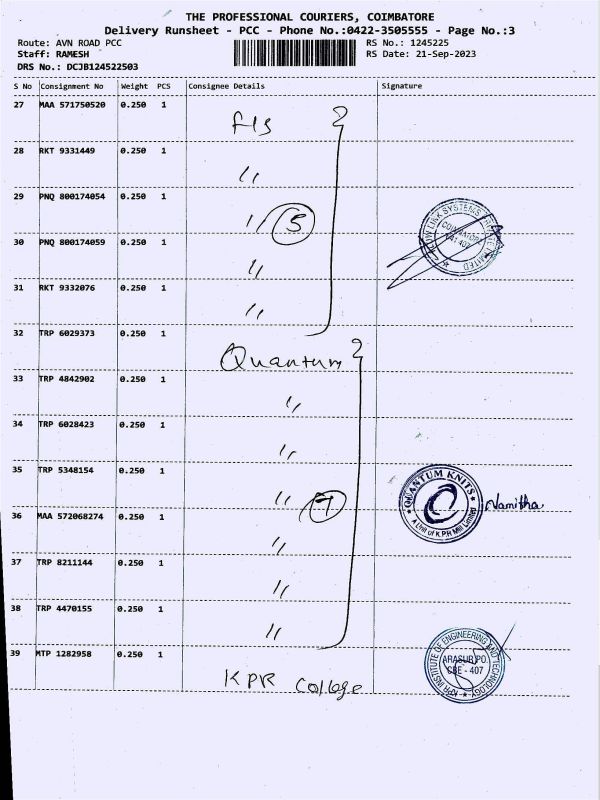 THE PROFESSIONAL COURIERS, COIMBATORE
Delivery Runsheet - PCC - Phone No.:0422-3505555 - Page No.:3
Route: AVN ROAD PCC
Staff: RAMESH
DRS No.: DCJB124522503
RS No.: 1245225
RS Date: 21-Sep-2023
S No Consignment No Weight PCS Consignee Details Signature
27 MAA 571750520 0.250 1
28 RKT 9331449 0.250 1 "
29 PNQ 800174054 0.250 1 " 5
30 PNQ 800174059 0.250 1 "
31 RKT 9332076 0.250 1 "
32 TRP 6029373 0.250 1 Quantum
33 TRP 4842902 0.250 1 "
34 TRP 6028423 0.250 1 "
35 TRP 5348154 0.250 1 " 7
QUANTUM KNITS
A Unit of K.P.R Mill Limited
Namitha
36 MAA 572068274 0.250 1 "
37 TRP 8211144 0.250 1 "
38 TRP 4470155 0.250 1 "
39 MTP 1282958 0.250 1 KPR College
KPR INSTITUTE OF ENGINEERING AND TECHNOLOGY
ARASUR PO.
CBE - 407